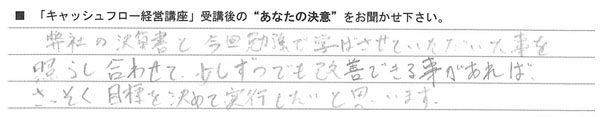 ■ 「キャッシュフロー経営講座」受講後の“あなたの決意”をお聞かせ下さい。
弊社の決算書と今回勉強で学ばさせていただいた事を
照らし合わせて、少しずつでも改善できる事があれば、
さっそく目標を決めて実行したいと思います。